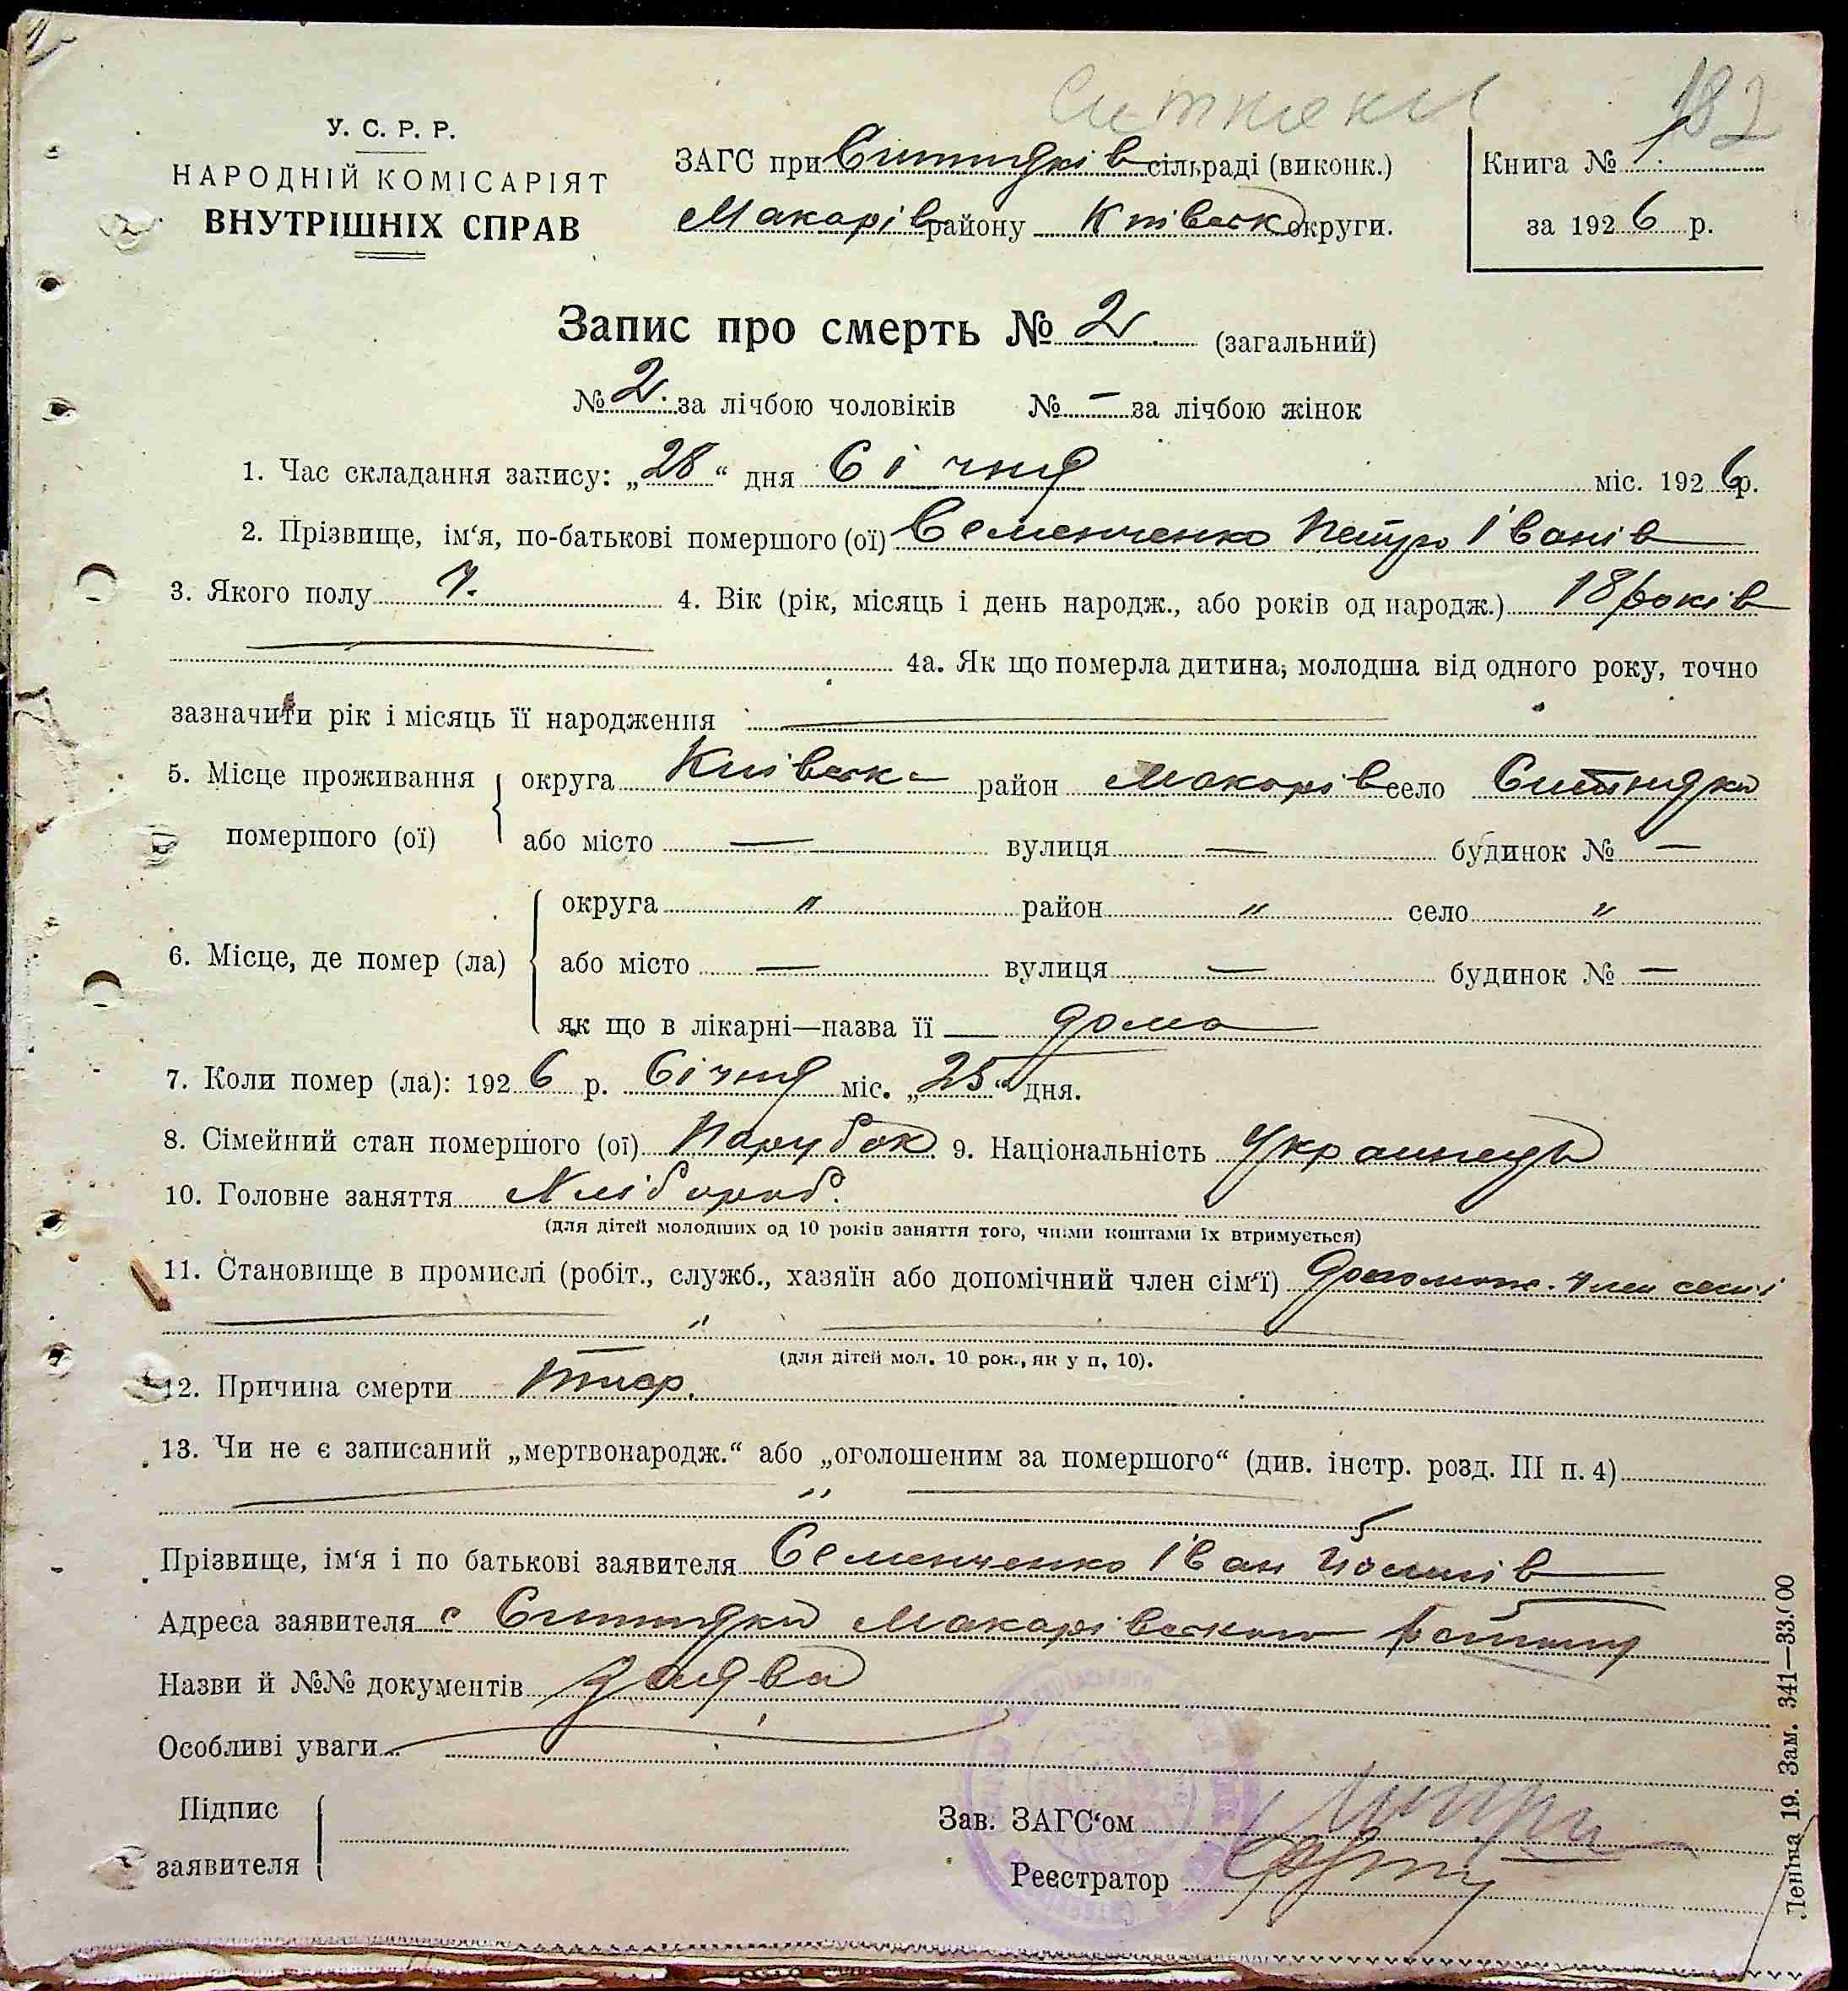 Ситняки 182
У. С. Р. Р.
НАРОДНІЙ КОМІСАРІЯТ
ВНУТРІШНІХ СПРАВ
ЗАГС при Ситняків сільраді (виконк.)
Макарів району Київськ округи.
Книга № 1.
за 1926 р.
Запис про смерть № 2 (загальний)
№ 2. за лічбою чоловіків № — за лічбою жінок
1. Час складання запису: „28“ дня Січня міс. 1926 р.
2. Прізвище, ім‘я, по-батькові помершого (ої) Семенченко Петро Іванів
3. Якого полу ч. 4. Вік (рік, місяць і день народж., або років од народж.) 18 років
4а. Як що померла дитина, молодша від одного року, точно
зазначити рік і місяць її народження —
5. Місце проживання помершого (ої) округа Київськ район Макарів село Ситняки
або місто — вулиця — будинок № —
6. Місце, де помер (ла) округа " район " село "
або місто — вулиця — будинок № —
як що в лікарні—назва її — дома
7. Коли помер (ла): 1926 р. Січня міс. „25“ дня.
8. Сімейний стан помершого (ої) Парубок 9. Національність Українець
10. Головне заняття Хлібороб.
(для дітей молодших од 10 років заняття того, чиїми коштами їх втримується)
11. Становище в промислі (робіт., служб., хазяїн або допомічний член сім‘ї) Допомож. член семї
— " —
(для дітей мол. 10 рок., як у п. 10).
12. Причина смерти
13. Чи не є записаний „мертвонародж.“ або „оголошеним за помершого“ (див. інстр. розд. III п. 4)
— " —
Прізвище, ім‘я і по батькові заявителя Семенченко Іван Йосипів
Адреса заявителя с Ситняки Макарівського
Назви й №№ документів заява
Особливі уваги
Підпис заявителя
Зав. ЗАГС‘ом
Реєстратор
Леніна 19. Зам. 341—33.000